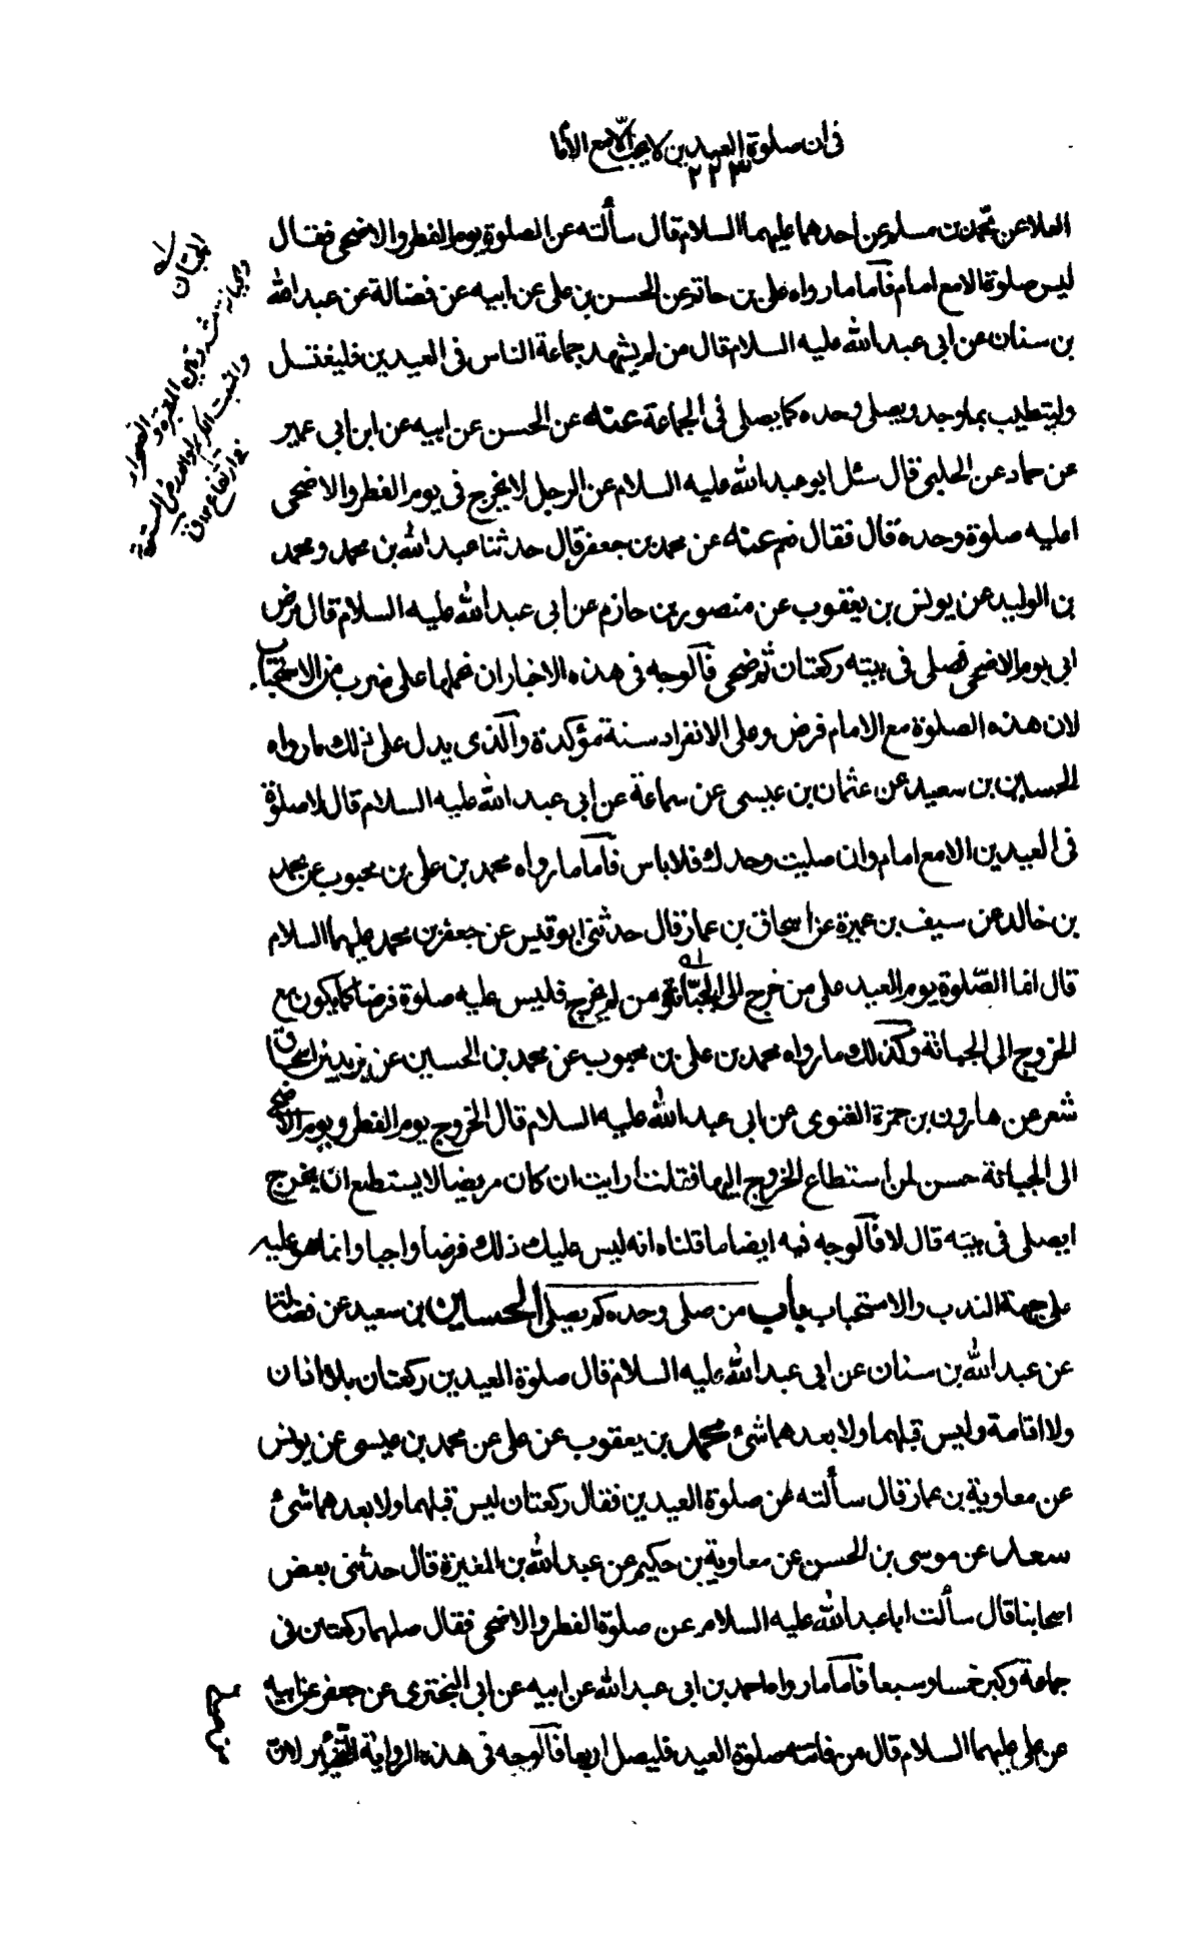 فى ان صلوة العيدين لا يجب الّا مع الأما
٢٢٣
العلا عن محمّد بن مسلم عن احدهما عليهما السلام قال سألته عن الصلوة يوم الفطر والاضحى فقال
ليس صلوة الا مع امام فأما ما رواه على بن حاتم عن الحسن بن على عن ابيه عن فضالة عن عبد الله
بن سنان عن ابى عبد الله عليه السلام قال من لم يشهد جماعة الناس فى العيدين فليغتسل
وليتطيب بما وجد ويصلى وحده كما يصلى فى الجماعة عنه عن الحسن عن ابيه عن ابن ابى عمير
عن حماد عن الحلبى قال سئل ابو عبد الله عليه السلام عن الرجل لا يخرج فى يوم الفطر والاضحى
اعليه صلوة وحده قال فقال نعم عنه عن محمد بن جعفر قال حدثنا عبد الله بن محمد ومحمد
بن الوليد عن يونس بن يعقوب عن منصور بن حازم عن ابى عبد الله عليه السلام قال مرض
ابى يوم الاضحى فصلى فى بيته ركعتان ثم ضحى فألوجه فى هذه الاخبار ان نحملها على ضرب من الاستحباب
لان هذه الصلوة مع الامام فرض وعلى الانفراد سنة مؤكدة وألذى يدل على ذلك ما رواه
الحسين بن سعيد عن عثمان بن عيسى عن سماعة عن ابى عبد الله عليه السلام قال لا صلوة
فى العيدين الا مع امام وان صليت وحدك فلا باس فأما ما رواه محمد بن على بن محبوب عن محمد
بن خالد عن سيف بن عميرة عن اسحاق بن عمار قال حدثنى ابو قيس عن جعفر بن محمد عليهما السلام
قال انما الصّلوة يوم العيد على من خرج الى الجبّانة ومن لم يخرج فليس عليه صلوة فرضا كما يكون مع
الخروج الى الجبانة وكذلك ما رواه محمد بن على بن محبوب عن محمد بن الحسين عن يزيد بن اسحاق
شعر عن هارون بن حمزة الغنوى عن ابى عبد الله عليه السلام قال الخروج يوم الفطر ويوم الاضحى
الى الجبانة حسن لمن استطاع الخروج اليها فقلت ارايت ان كان مريضا لا يستطيع ان يخرج
ايصلى فى بيته قال لا فألوجه فيه ايضا ما قلناه انه ليس عليك ذلك فرضا واجبا وانما هو عليه
على جهة الندب والاستحباب باب من صلى وحده كم يصلى الحسين بن سعيد عن فضالة
عن عبد الله بن سنان عن ابى عبد الله عليه السلام قال صلوة العيدين ركعتان بلا اذان
ولا اقامة وليس قبلهما ولا بعدهما شئ محمد بن يعقوب عن على عن محمد بن عيسى عن يونس
عن معاوية بن عمار قال سألته عن صلوة العيدين فقال ركعتان ليس قبلهما ولا بعدهما شئ
سعد عن موسى بن الحسن عن معاوية بن حكيم عن عبد الله بن المغيرة قال حدثنى بعض
اصحابنا قال سألت ابا عبد الله عليه السلام عن صلوة الفطر والاضحى فقال صلهما ركعتين فى
جماعة وكبر خمسا وسبعا فأما ما رواه احمد بن ابى عبد الله عن ابيه عن ابى البخترى عن جعفر عن ابيه
عن على عليهما السلام قال من فاتته صلوة العيد فليصل اربعا فألوجه فى هذه الرواية التخيير لان